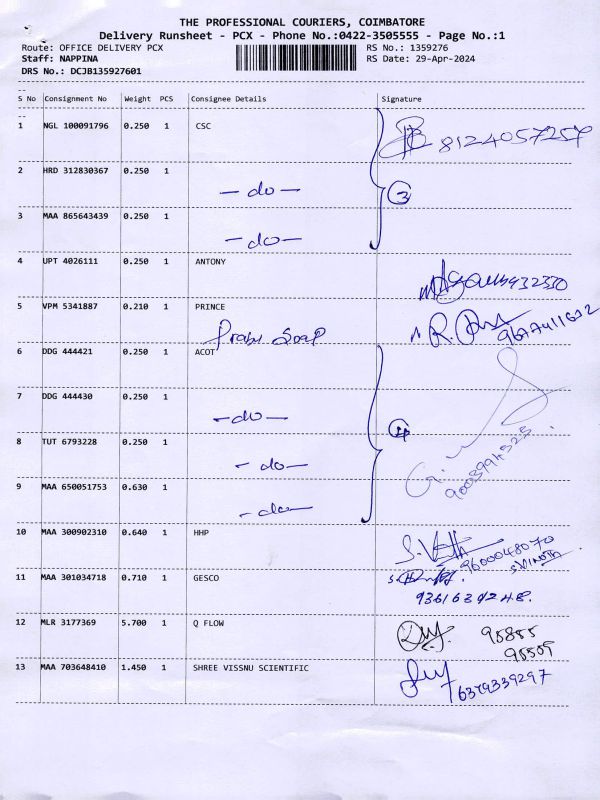 THE PROFESSIONAL COURIERS, COIMBATORE
Delivery Runsheet - PCX - Phone No.:0422-3505555 - Page No.:1
Route: OFFICE DELIVERY PCX RS No.: 1359276
Staff: NAPPINA RS Date: 29-Apr-2024
DRS No.: DCJB135927601
S No Consignment No Weight PCS Consignee Details Signature
1 NGL 100091796 0.250 1 CSC 8124057257
2 HRD 312830367 0.250 1
- do - 3
3 MAA 865643439 0.250 1
- do -
4 UPT 4026111 0.250 1 ANTONY
5 VPM 5341887 0.210 1 PRINCE
Prabu Soap 9677411612
6 DDG 444421 0.250 1 ACOT
7 DDG 444430 0.250 1
- do - 4
8 TUT 6793228 0.250 1
- do - 9003994525
9 MAA 650051753 0.630 1
- do -
10 MAA 300902310 0.640 1 HHP 9600048070
S.VINOTH
11 MAA 301034718 0.710 1 GESCO
9361639248.
12 MLR 3177369 5.700 1 Q FLOW 95855
95509
13 MAA 703648410 1.450 1 SHREE VISSNU SCIENTIFIC
6379339297